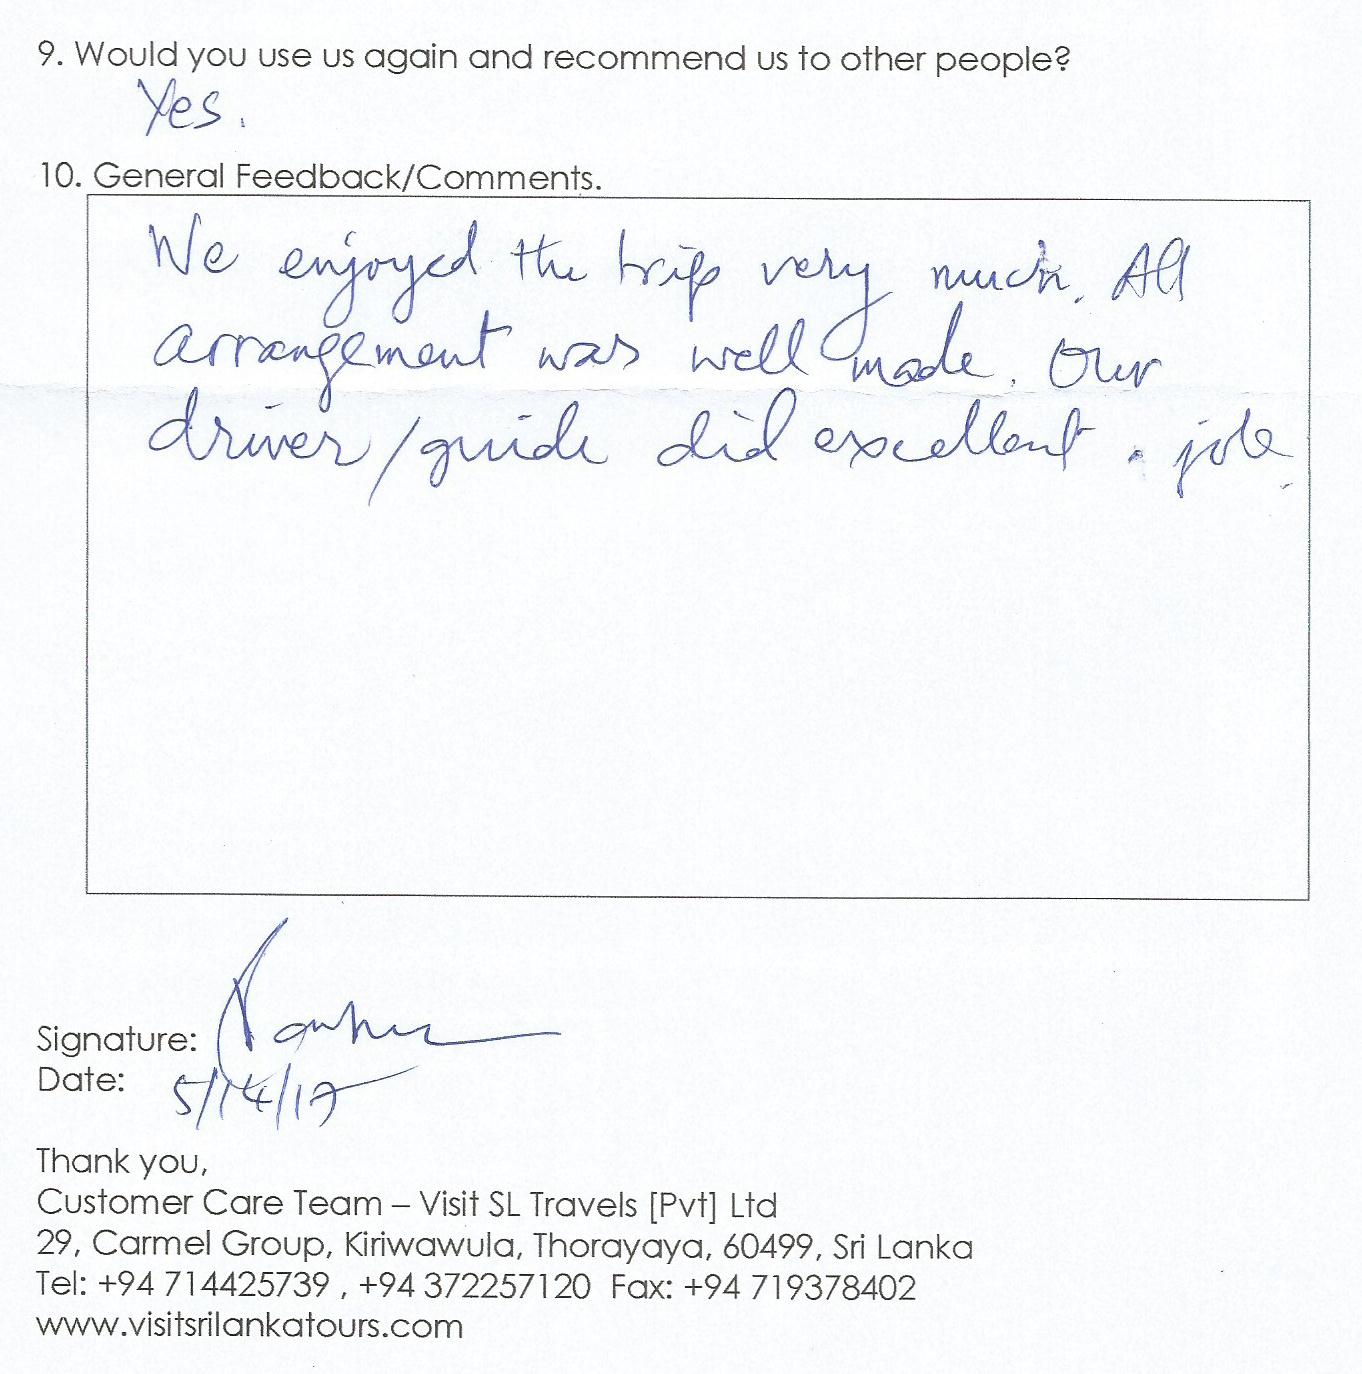 9. Would you use us again and recommend us to other people?
Yes.
10. General Feedback/Comments.
We enjoyed the trip very much. All
arrangement was well made. Our
driver/guide did excellent . job.
Signature:
Date: 5/14/17
Thank you,
Customer Care Team – Visit SL Travels [Pvt] Ltd
29, Carmel Group, Kiriwawula, Thorayaya, 60499, Sri Lanka
Tel: +94 714425739 , +94 372257120 Fax: +94 719378402
www.visitsrilankatours.com